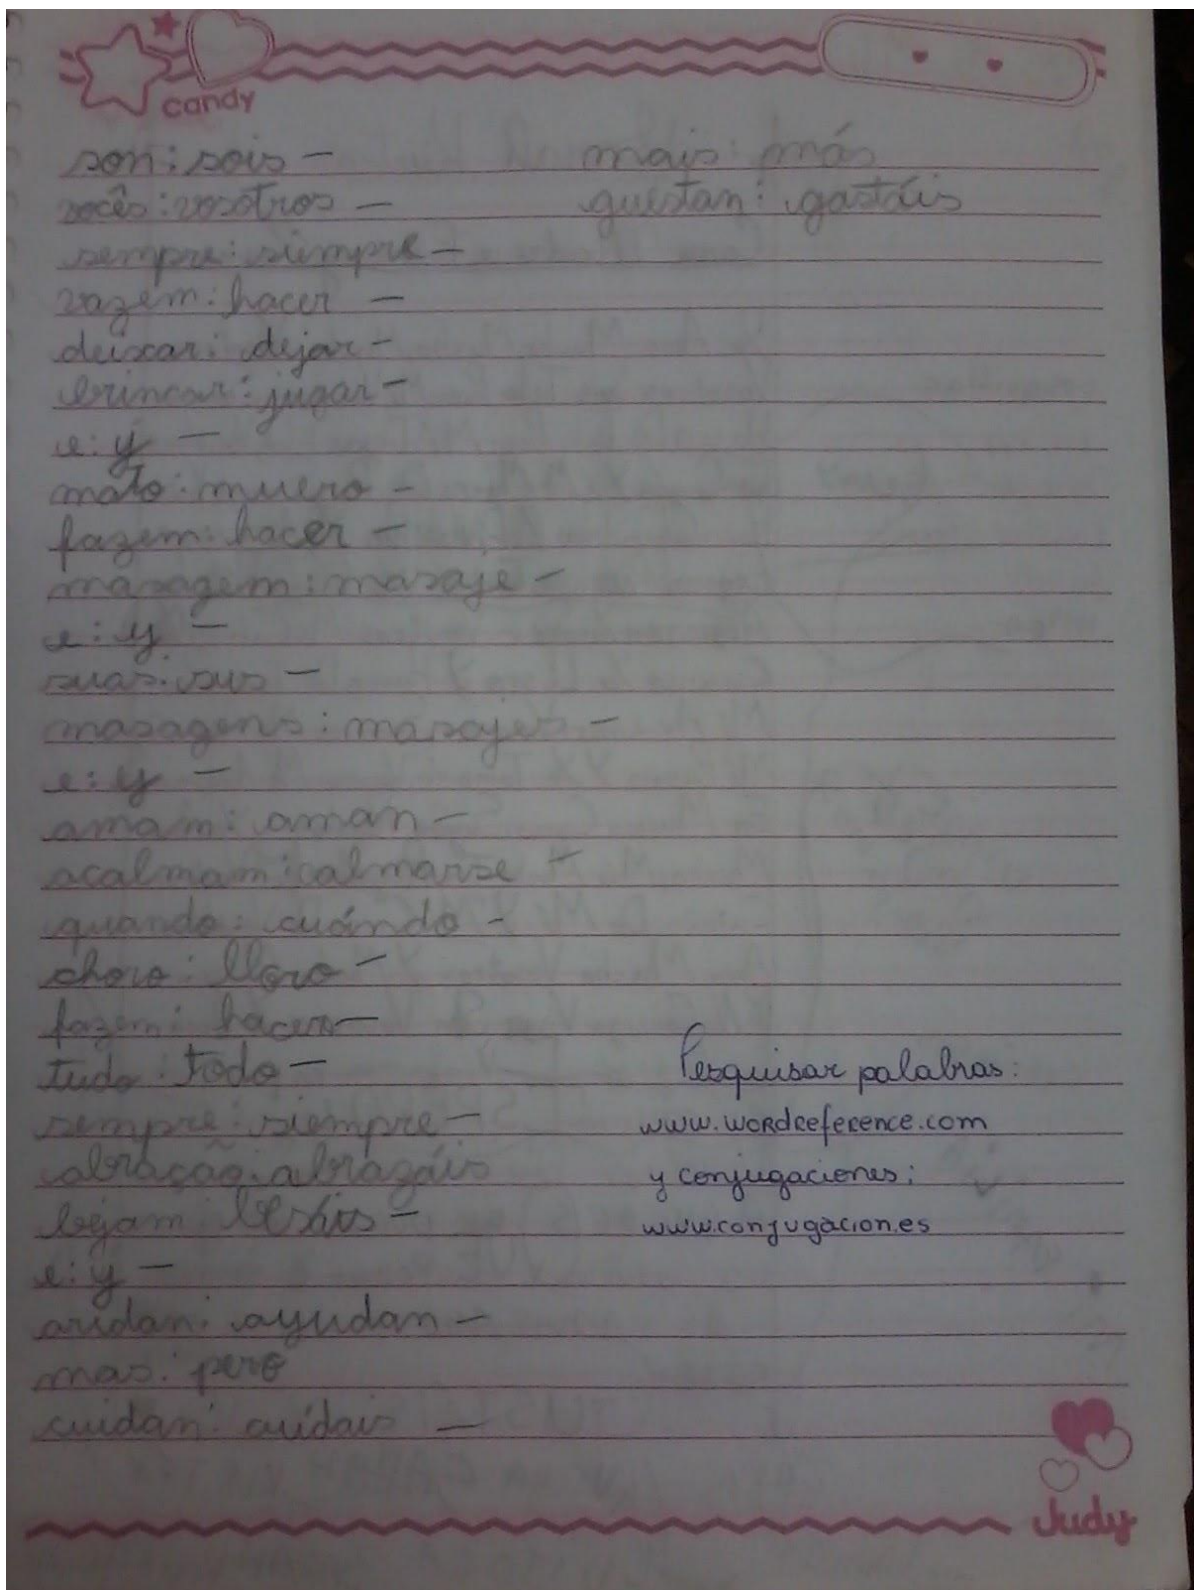 candy
son: sois —
vocês: vosotros —
sempre: siempre —
vazem: hacer —
deixar: dejar —
brincar: jugar —
e: y —
mato: muero —
fazem: hacer —
masagem: masaje —
e: y —
suas: sus —
masagens: masajes —
e: y —
amam: aman —
acalmam: calmarse —
quando: cuándo —
choro: lloro —
fazem: hacer —
tudo: todo —
sempre: siempre —
abração: abrazáis
bejam: besáis —
e: y —
aridan: ayudan —
mas: pero
cuidan: cuidais —
mais: más
guestan: gastáis
Pesquisar palabras:
www.wordreference.com
y conjugaciones:
www.conjugacion.es
Judy